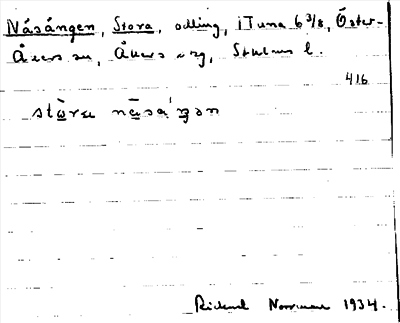 Näsängen, Stora, odling, i Tuna 6 3/8, Öster-
Åkers sn, Åkers srg, Sthlms l.
416
stòra nä̀säŋən
Rickard Norrman 1934.